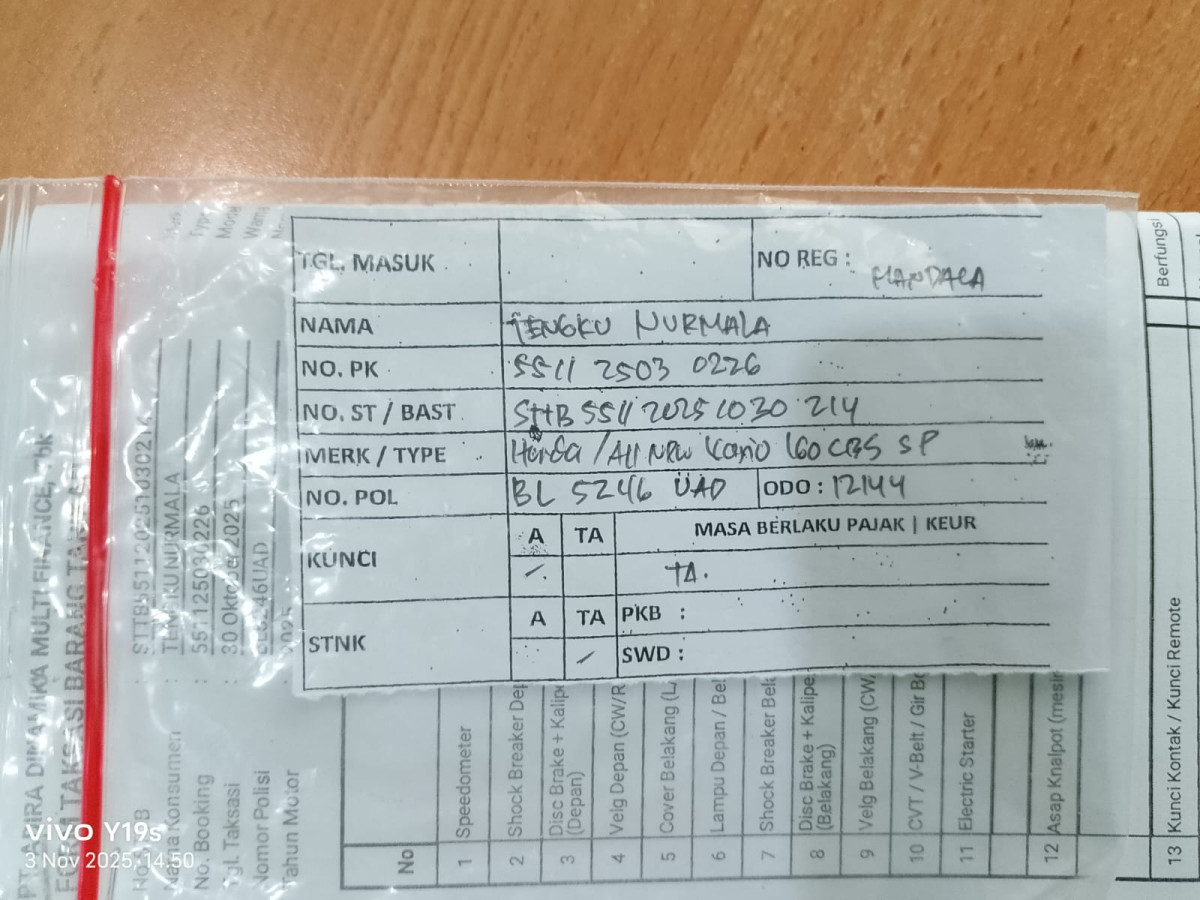 TGL. MASUK NO REG : MANDALA
NAMA TENGKU NURMALA
NO. PK 5511 2503 0226
NO. ST / BAST STTB 5511 2025 1030 214
MERK / TYPE Honda / All New Vario 160 CBS SP
NO. POL BL 5246 UAD ODO : 12144
KUNCI A TA MASA BERLAKU PAJAK | KEUR
TA.
STNK A TA PKB :
SWD :
DINAMIKA MULTI FINANCE, Tbk
TAKSASI BARANG
STTB551120251030214
Nama Konsumen : NURMALA
No. Booking : 551125030226
Tgl. Taksasi : 30 Oktober 2025
Nomor Polisi
Tahun Motor 2025
No
1 Speedometer
2 Shock Breaker Dep
3 Disc Brake + Kalipe
(Depan)
4 Velg Depan (CW/R
5 Cover Belakang (L
6 Lampu Depan / Bel
7 Shock Breaker Bela
8 Disc Brake + Kalipe
(Belakang)
9 Velg Belakang (CW
10 CVT / V-Belt / Gir Bo
11 Electric Starter
12 Asap Knalpot (mesin
13 Kunci Kontak / Kunci Remote
Berfungsi
vivo Y19s
3 Nov 2025, 14.50